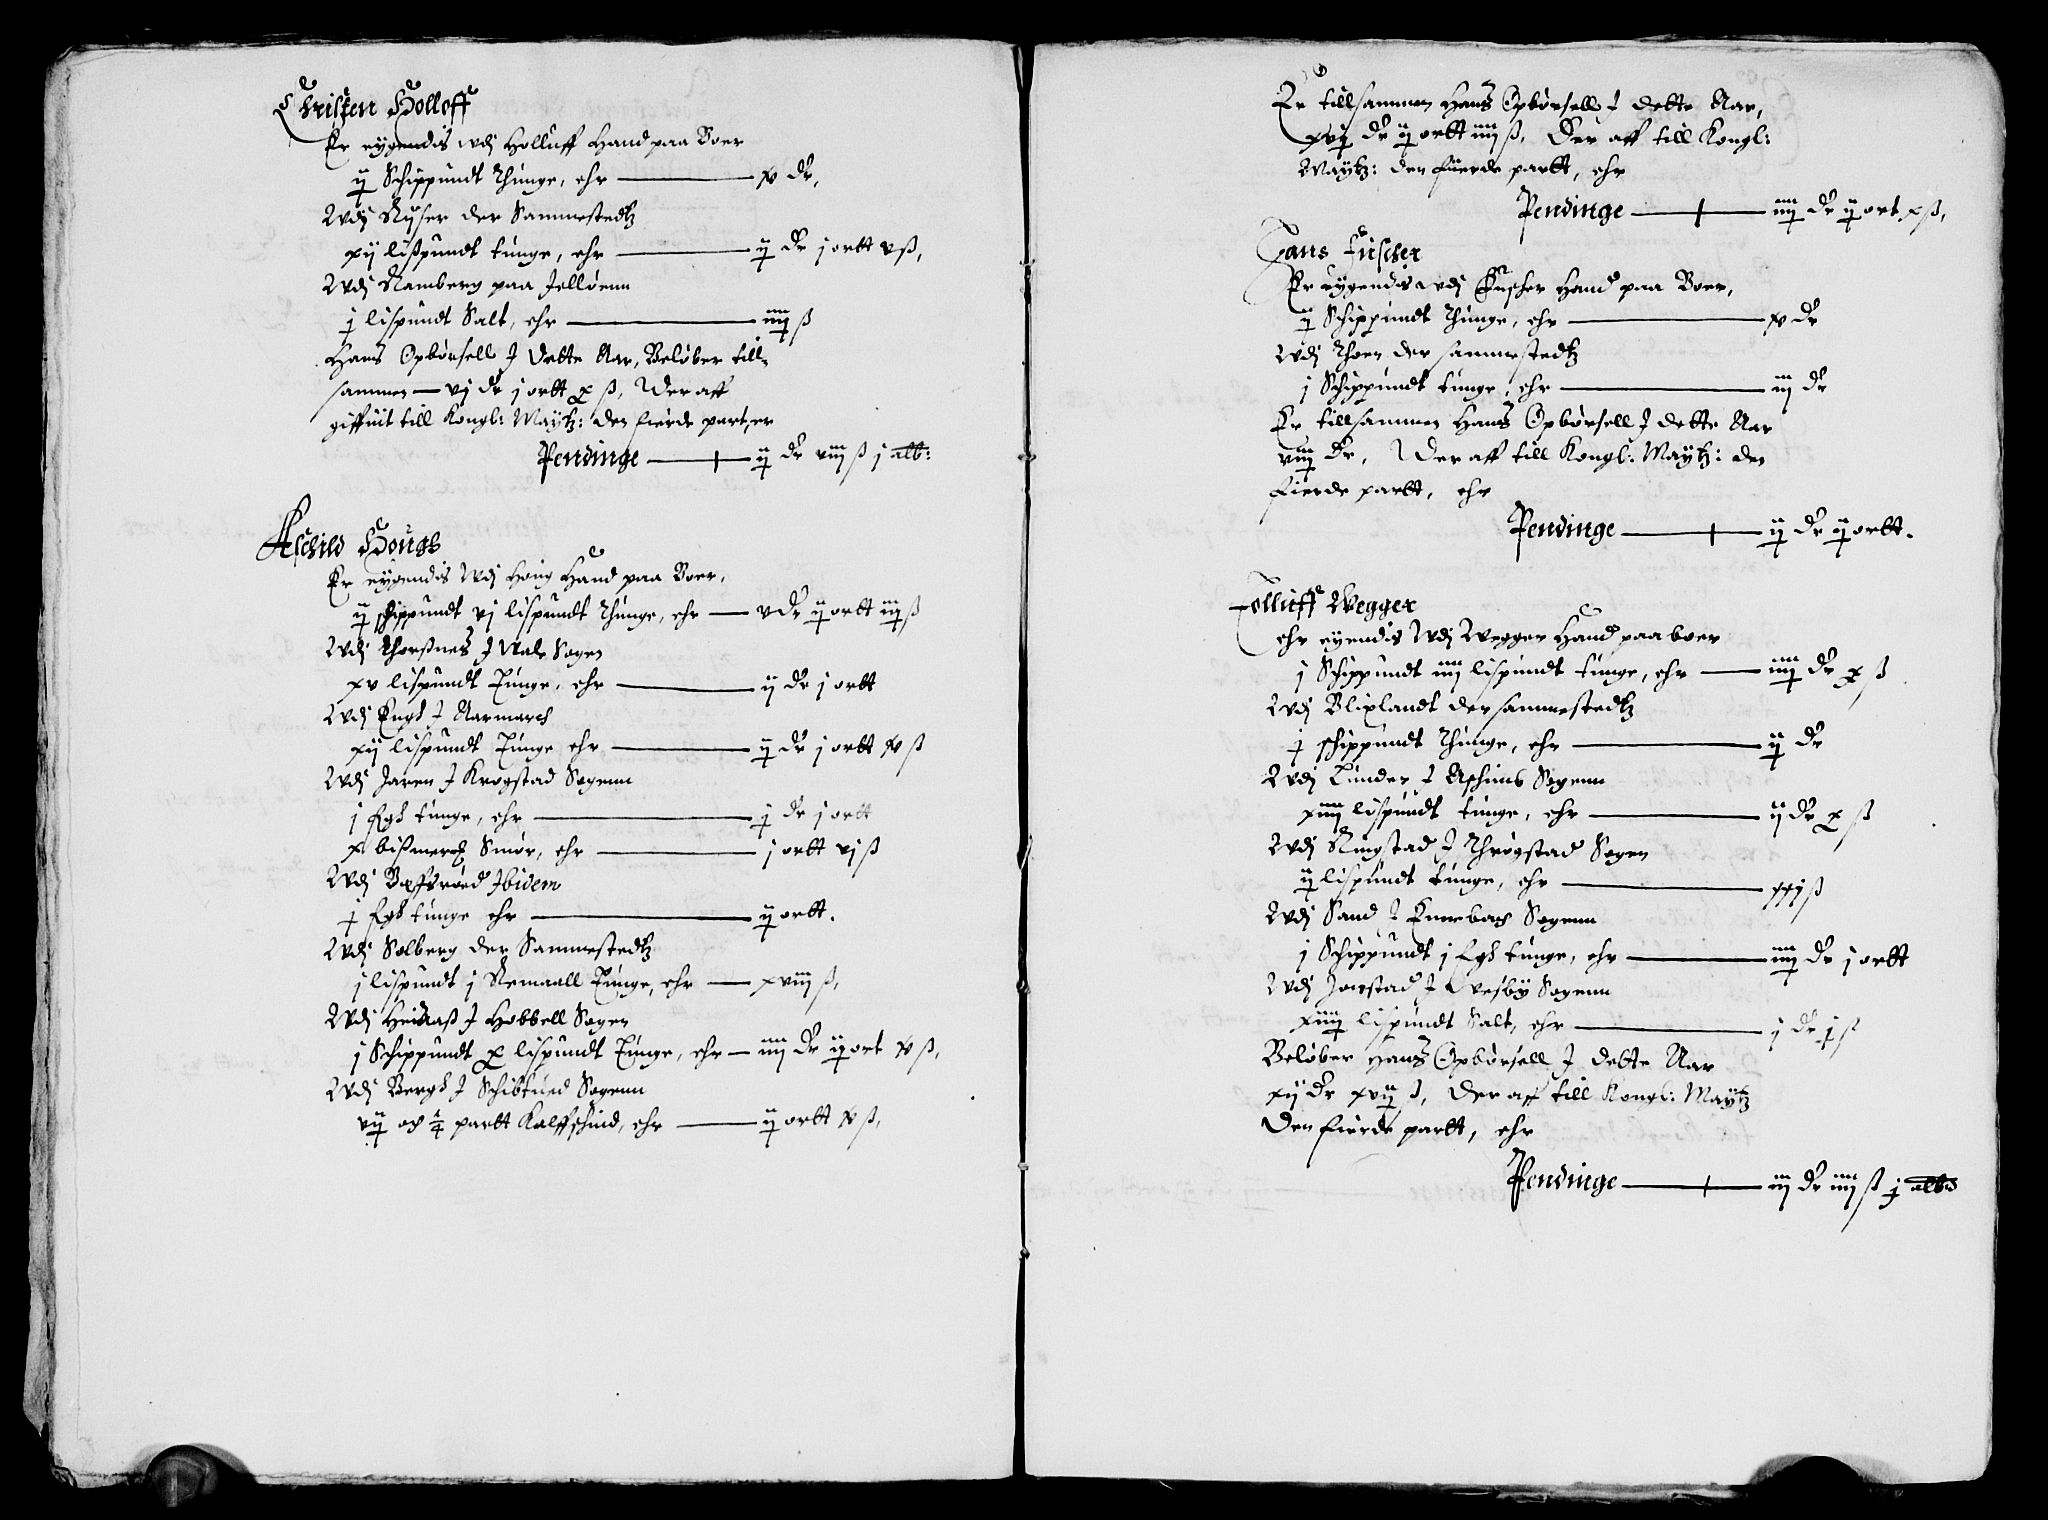 Christen Holloff
Er eygendis Udj Holluff Hand paa Boer
ij Schippundt Thunge, ehr — v dr,
Udj Ryser der Sammestedtz
xij lißpundt tunge, ehr — ij dr j ortt vß,
Udj Ramberg paa Jelløenn
j lispundt Salt, ehr — iiij ß
Hans Opbørsell J dette Aar, Beløber till-
sammen — vj dr j ortt x ß, Der aff
giffuit till Kongl: Maytz: den fierde part, er
Pendinge — ij dr viij ß j alb:
Aschild Hough
Er eygendis Udj Houg Hand paa Boer,
ij schippundt vj lispundt Thunge, ehr — v dr ij ortt iiij ß
Udj Thorsnes J Wale Sogen
xv lispundt Tunge, ehr — ij dr j ortt
Udj Engh J Aarmarch
xij lispundt Tunge ehr — ij dr j ortt v ß
Udj Jaren J Krogstad Sogenn
j fgh tunge, ehr — j dr j ortt
x bißmerch Smør, ehr — j ortt vj ß
Udj Ibidem
j fgh tunge ehr — ij ortt.
Udj Solberg der Sammestedtz
j lispundt j Remaall Tunge, ehr — xviij ß,
Udj J Hobbell Sogen
j Schippundt x lispundt Tunge, ehr — iiij dr ij ort v ß,
Udj Bergh J Schibtued Sogenn
vij och 1/4 partt Kalffschind, ehr — ij ortt v ß,
Er tillsammen Hans Opbørsell J dette Aar,
xvij dr ij ortt iiij ß, Der aff till Kongl:
Maytz: den fierde partt, ehr
Pendinge — iiij dr ij ort x ß,
Hans Fuscher
Er eygendis Udj Fuscher Hand paa Boer,
ij Schippundt Thunge, ehr — v dr
Udj Thoen der sammestedtz
j Schippundt tunge, ehr — iij dr
Er tillsammen Hans Opbørsell J dette Aar
viij dr, Der aff till Kongl: Maytz: den
fierde partt, ehr
Pendinge — ij dr ij ortt.
Tolluff Wegger
ehr eyendis Udj Wegger Hand paa boer
j Schippundt iiij lispundt tunge, ehr — iiij dr x ß
Udj Blixlandt der sammestedtz
j schippundt Thunge, ehr — ij dr
Udj Lunder J Aschims Sogenn
xiiij lispundt tunge, ehr — ij dr x ß
Udj Ringstad J Thrøgstad Sogen
ij lispundt tunge, ehr — xxj ß
Udj Sand J Ennebach Sogenn
j Schippundt j fgh tunge, ehr — iiij dr j ortt
Udj Jonstad J Wesby Sogenn
xiiij lispundt Salt, ehr — j dr j ß
Beløber Hans Opbørsell J dette Aar
xij dr xvij ß, Der aff till Kongl: Maytz
Den fierde partt, ehr
Pendinge — iij dr iiij ß j alb